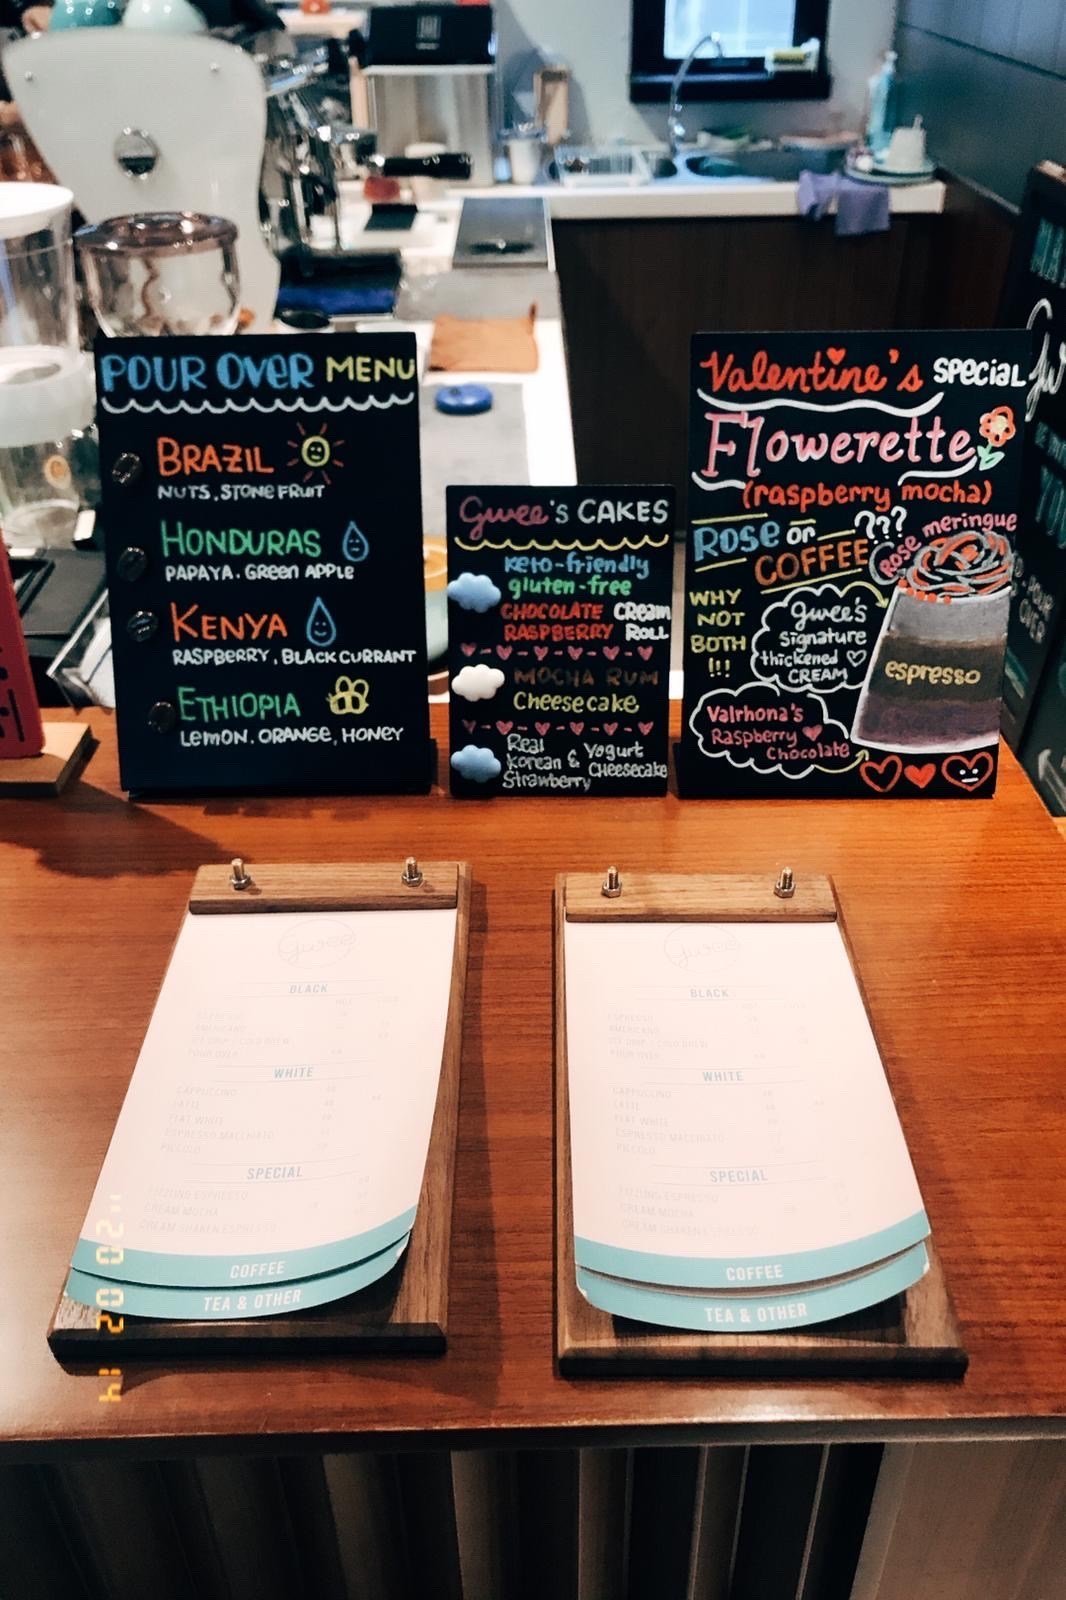 POUR OVER MENU
BRAZIL
NUTS, STONE FRUIT
HONDURAS
PAPAYA. Green APPLE
KENYA
RASPBERRY, BLACKCURRANT
ETHIOPIA
Lemon. ORANGE, HONEY
Gwee's CAKES
keto-friendly
gluten-free
CHOCOLATE CReam
RASPBERRY ROLL
MOCHA RUM
Cheesecake
Real
Korean & Yogurt
Strawberry Cheesecake
Valentine's SPecial
Flowerette
(raspberry mocha)
ROSE or ???
COFFEE
Rose meringue
WHY
NOT
BOTH
!!!
gwee's
Signature
thickened
CREAM
espresso
Valrhona's
Raspberry
Chocolate
gwee
BLACK
HOT
ESPRESSO
AMERICANO
ICE DRIP / COLD BREW
POUR OVER
WHITE
CAPPUCCINO
LATTE
FLAT WHITE
ESPRESSO MACCHIATO
PICCOLO
SPECIAL
FIZZLING ESPRESSO
CREAM MOCHA
CREAM SHAKEN ESPRESSO
COFFEE
TEA & OTHER
gwee
BLACK
HOT
ESPRESSO
AMERICANO
ICE DRIP / COLD BREW
POUR OVER
WHITE
CAPPUCCINO
LATTE
FLAT WHITE
ESPRESSO MACCHIATO
PICCOLO
SPECIAL
FIZZLING ESPRESSO
CREAM MOCHA
CREAM SHAKEN ESPRESSO
COFFEE
TEA & OTHER